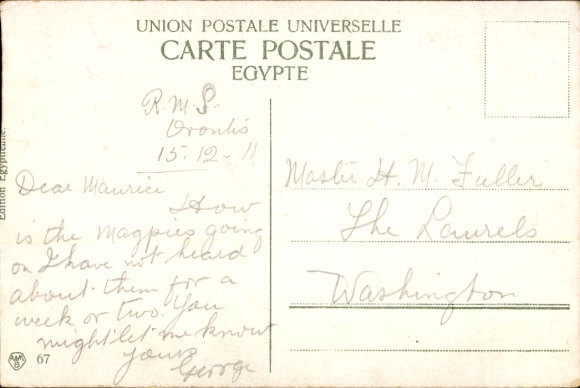 UNION POSTALE UNIVERSELLE
CARTE POSTALE
EGYPTE
R.M.S.
Orontis
15.12-11
Dear Maurice
How
is the Magpies going
on I have not heard
about them for a
week or two. You
might let me know
yours
George
Master H. M. Fuller
The Laurels
Washington
Edition Egyptienne.
67